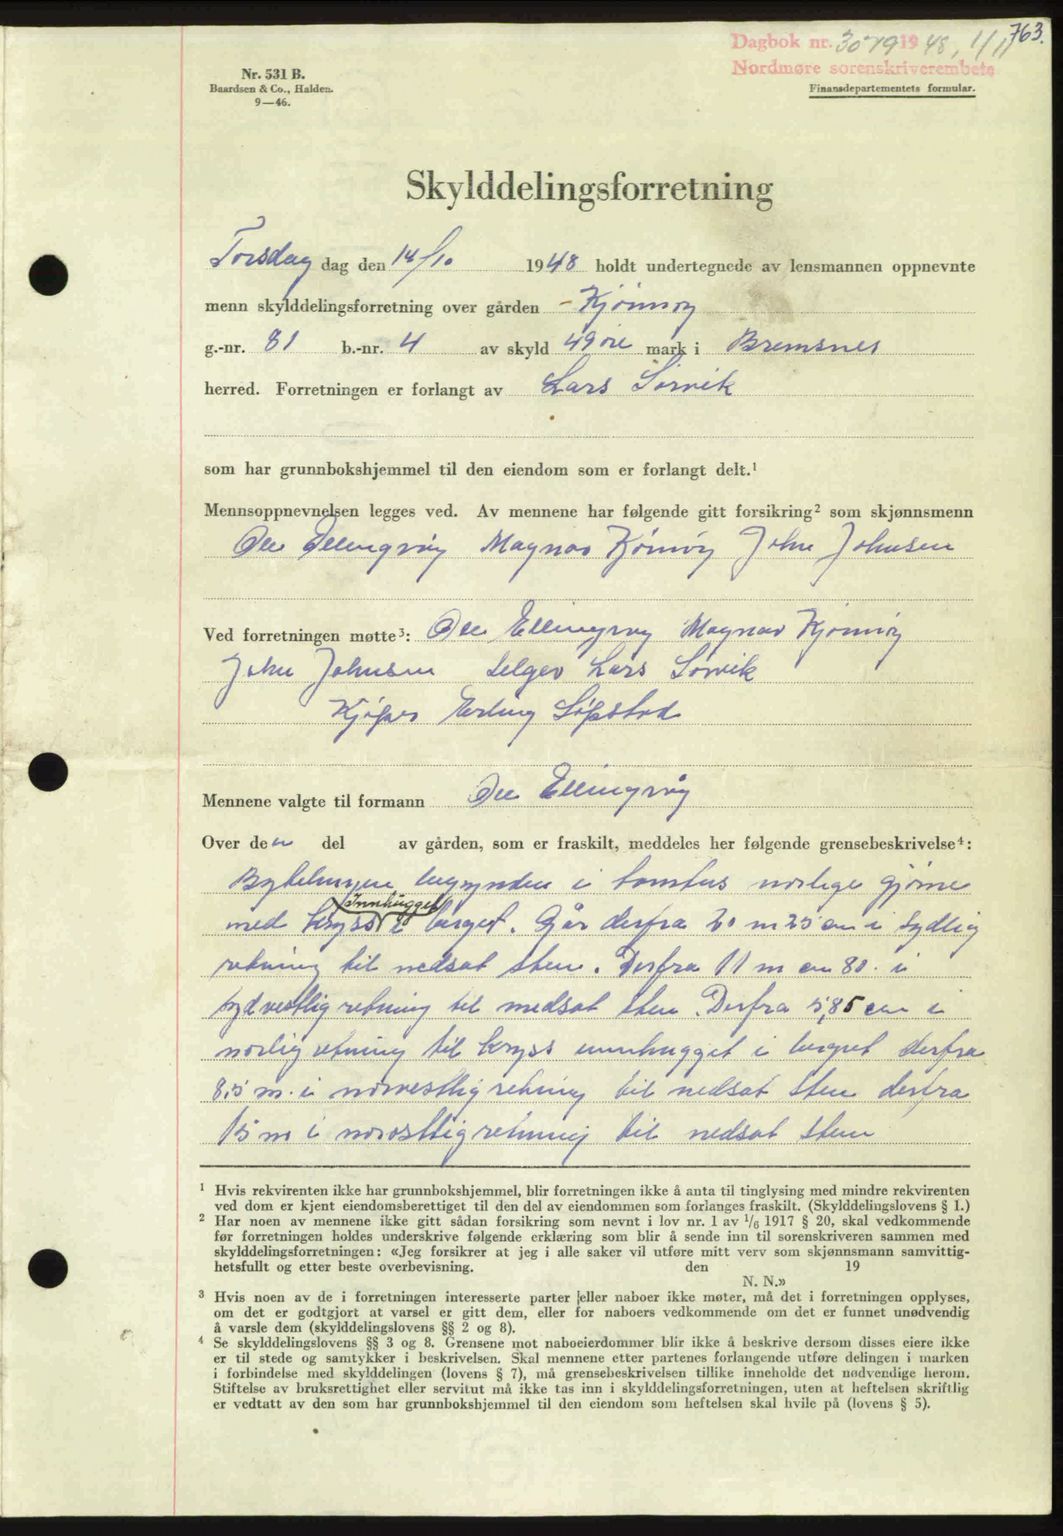 763.
Dagbok nr. 3079 1948, 1/11
Nordmøre sorenskriverembete
Nr. 531 B.
Baardsen & Co., Halden.
9—46.
Finansdepartementets formular.
Skylddelingsforretning
Torsdag dag den 14/10 1948 holdt undertegnede av lensmannen oppnevnte
menn skylddelingsforretning over gården - Kjönnöy
g.-nr. 81 b.-nr. 4 av skyld 49 öre mark i Bremsnes
herred. Forretningen er forlangt av Lars Sörvik
som har grunnbokshjemmel til den eiendom som er forlangt delt.¹
Mennsoppnevnelsen legges ved. Av mennene har følgende gitt forsikring² som skjønnsmenn
Ole Ellingvåg Magnar Kjönnöy John Johnsen
Ved forretningen møtte³: Ole Ellingvåg Magnar Kjönnöy
John Johnsen Selger Lars Sörvik
Kjöper Erling Söpstad
Mennene valgte til formann Ole Ellingvåg
Over den del av gården, som er fraskilt, meddeles her følgende grensebeskrivelse⁴:
begynder i tomtas norlige gjörne
Innhugget
med kryss i berget. Går derfra 20 m 25 cm i sydlig
retning til nedsat sten. Derfra 11 m cm 80. i
sydvestlig retning til nedsat sten. Derfra 5,85 cm i
norlig retning til kryss innhugget i berget derfra
8,5 m. i norvestlig retning til nedsat sten derfra
15 m i norostlig retning til nedsat sten
¹ Hvis rekvirenten ikke har grunnbokshjemmel, blir forretningen ikke å anta til tinglysing med mindre rekvirenten
ved dom er kjent eiendomsberettiget til den del av eiendommen som forlanges fraskilt. (Skylddelingslovens § 1.)
² Har noen av mennene ikke gitt sådan forsikring som nevnt i lov nr. 1 av 1/6 1917 § 20, skal vedkommende
før forretningen holdes underskrive følgende erklæring som blir å sende inn til sorenskriveren sammen med
skylddelingsforretningen: «Jeg forsikrer at jeg i alle saker vil utføre mitt verv som skjønnsmann samvittig-
hetsfullt og etter beste overbevisning. den 19
N. N.»
³ Hvis noen av de i forretningen interesserte parter eller naboer ikke møter, må det i forretningen opplyses,
om det er godtgjort at varsel er gitt dem, eller for naboers vedkommende om det er funnet unødvendig
å varsle dem (skylddelingslovens §§ 2 og 8).
⁴ Se skylddelingslovens §§ 3 og 8. Grensene mot naboeierdommer blir ikke å beskrive dersom disses eiere ikke
er til stede og samtykker i beskrivelsen. Skal mennene etter partenes forlangende utføre delingen i marken
i forbindelse med skylddelingen (lovens § 7), må grensebeskrivelsen tillike inneholde det nødvendige herom.
Stiftelse av bruksrettighet eller servitut må ikke tas inn i skylddelingsforretningen, uten at heftelsen skriftlig
er vedtatt av den som har grunnbokshjemmel til den eiendom som heftelsen skal hvile på (lovens § 5).